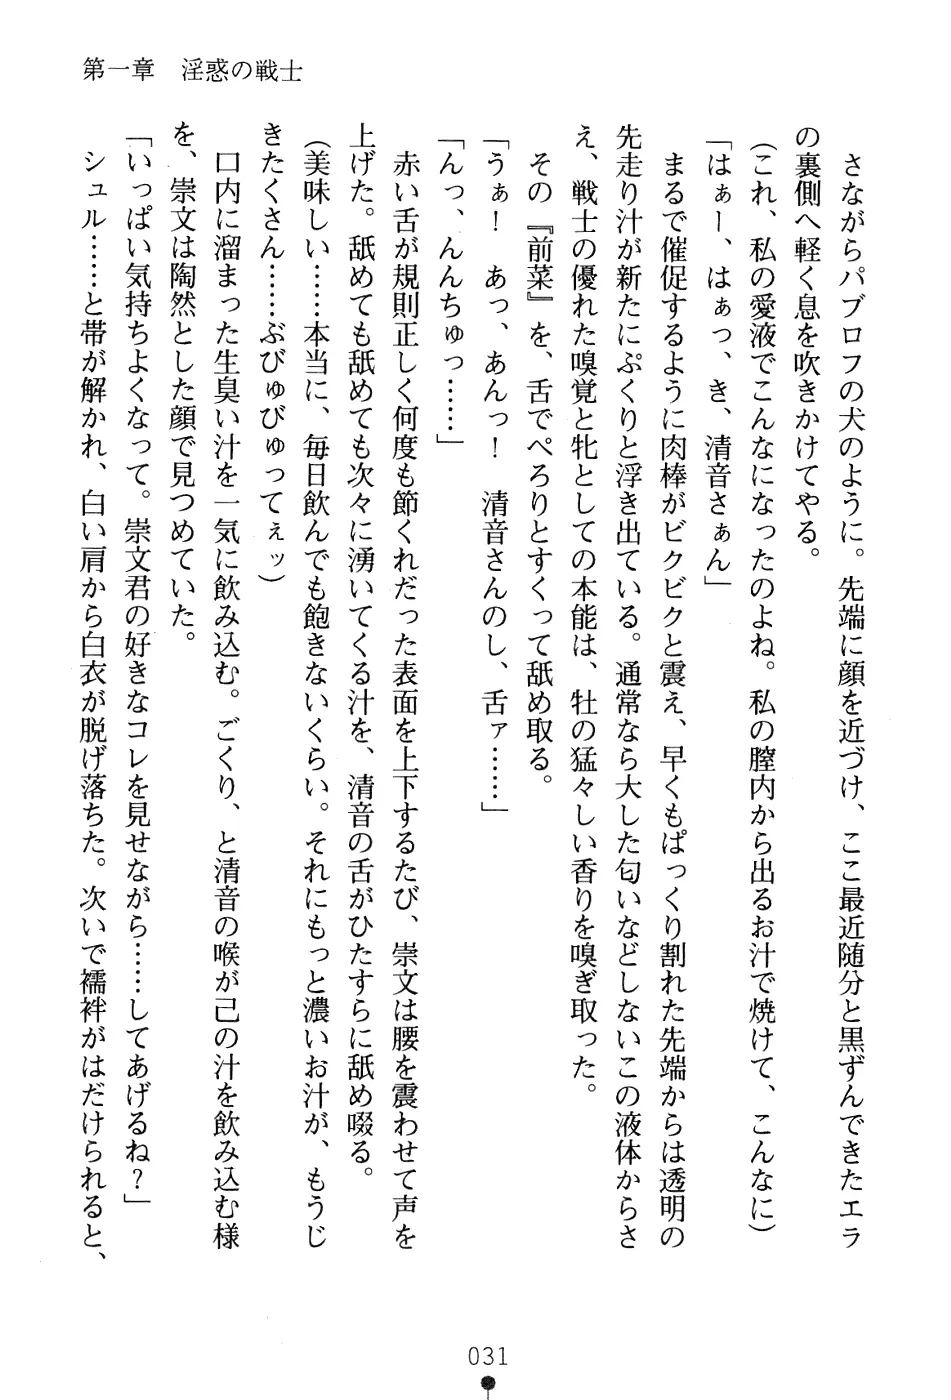 第一章　淫惑の戦士
　さながらパブロフの犬のように。先端に顔を近づけ、ここ最近随分と黒ずんできたエラ
の裏側へ軽く息を吹きかけてやる。
（これ、私の愛液でこんなになったのよね。私の膣内から出るお汁で焼けて、こんなに）
「はぁー、はぁっ、き、清音さぁん」
　まるで催促するように肉棒がビクビクと震え、早くもぱっくり割れた先端からは透明の
先走り汁が新たにぷくりと浮き出ている。通常なら大した匂いなどしないこの液体からさ
え、戦士の優れた嗅覚と牝としての本能は、牡の猛々しい香りを嗅ぎ取った。
　その『前菜』を、舌でぺろりとすくって舐め取る。
「うぁ！　あっ、あんっ！　清音さんのし、舌ァ……」
「んっ、んんちゅっ……」
　赤い舌が規則正しく何度も節くれだった表面を上下するたび、崇文は腰を震わせて声を
上げた。舐めても舐めても次々に湧いてくる汁を、清音の舌がひたすらに舐め啜る。
（美味しい……本当に、毎日飲んでも飽きないくらい。それにもっと濃いお汁が、もうじ
きたくさん……ぶびゅびゅってぇッ）
　口内に溜まった生臭い汁を一気に飲み込む。ごくり、と清音の喉が己の汁を飲み込む様
を、崇文は陶然とした顔で見つめていた。
「いっぱい気持ちよくなって。崇文君の好きなコレを見せながら……してあげるね？」
　シュル……と帯が解かれ、白い肩から白衣が脱げ落ちた。次いで襦袢がはだけられると、
031